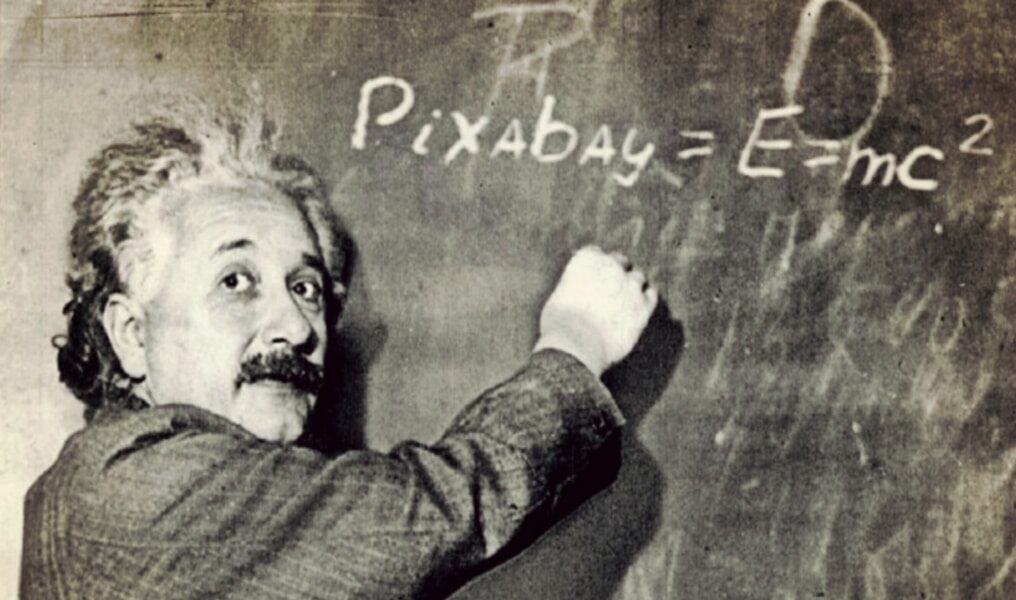 Pixabay = E=mc²